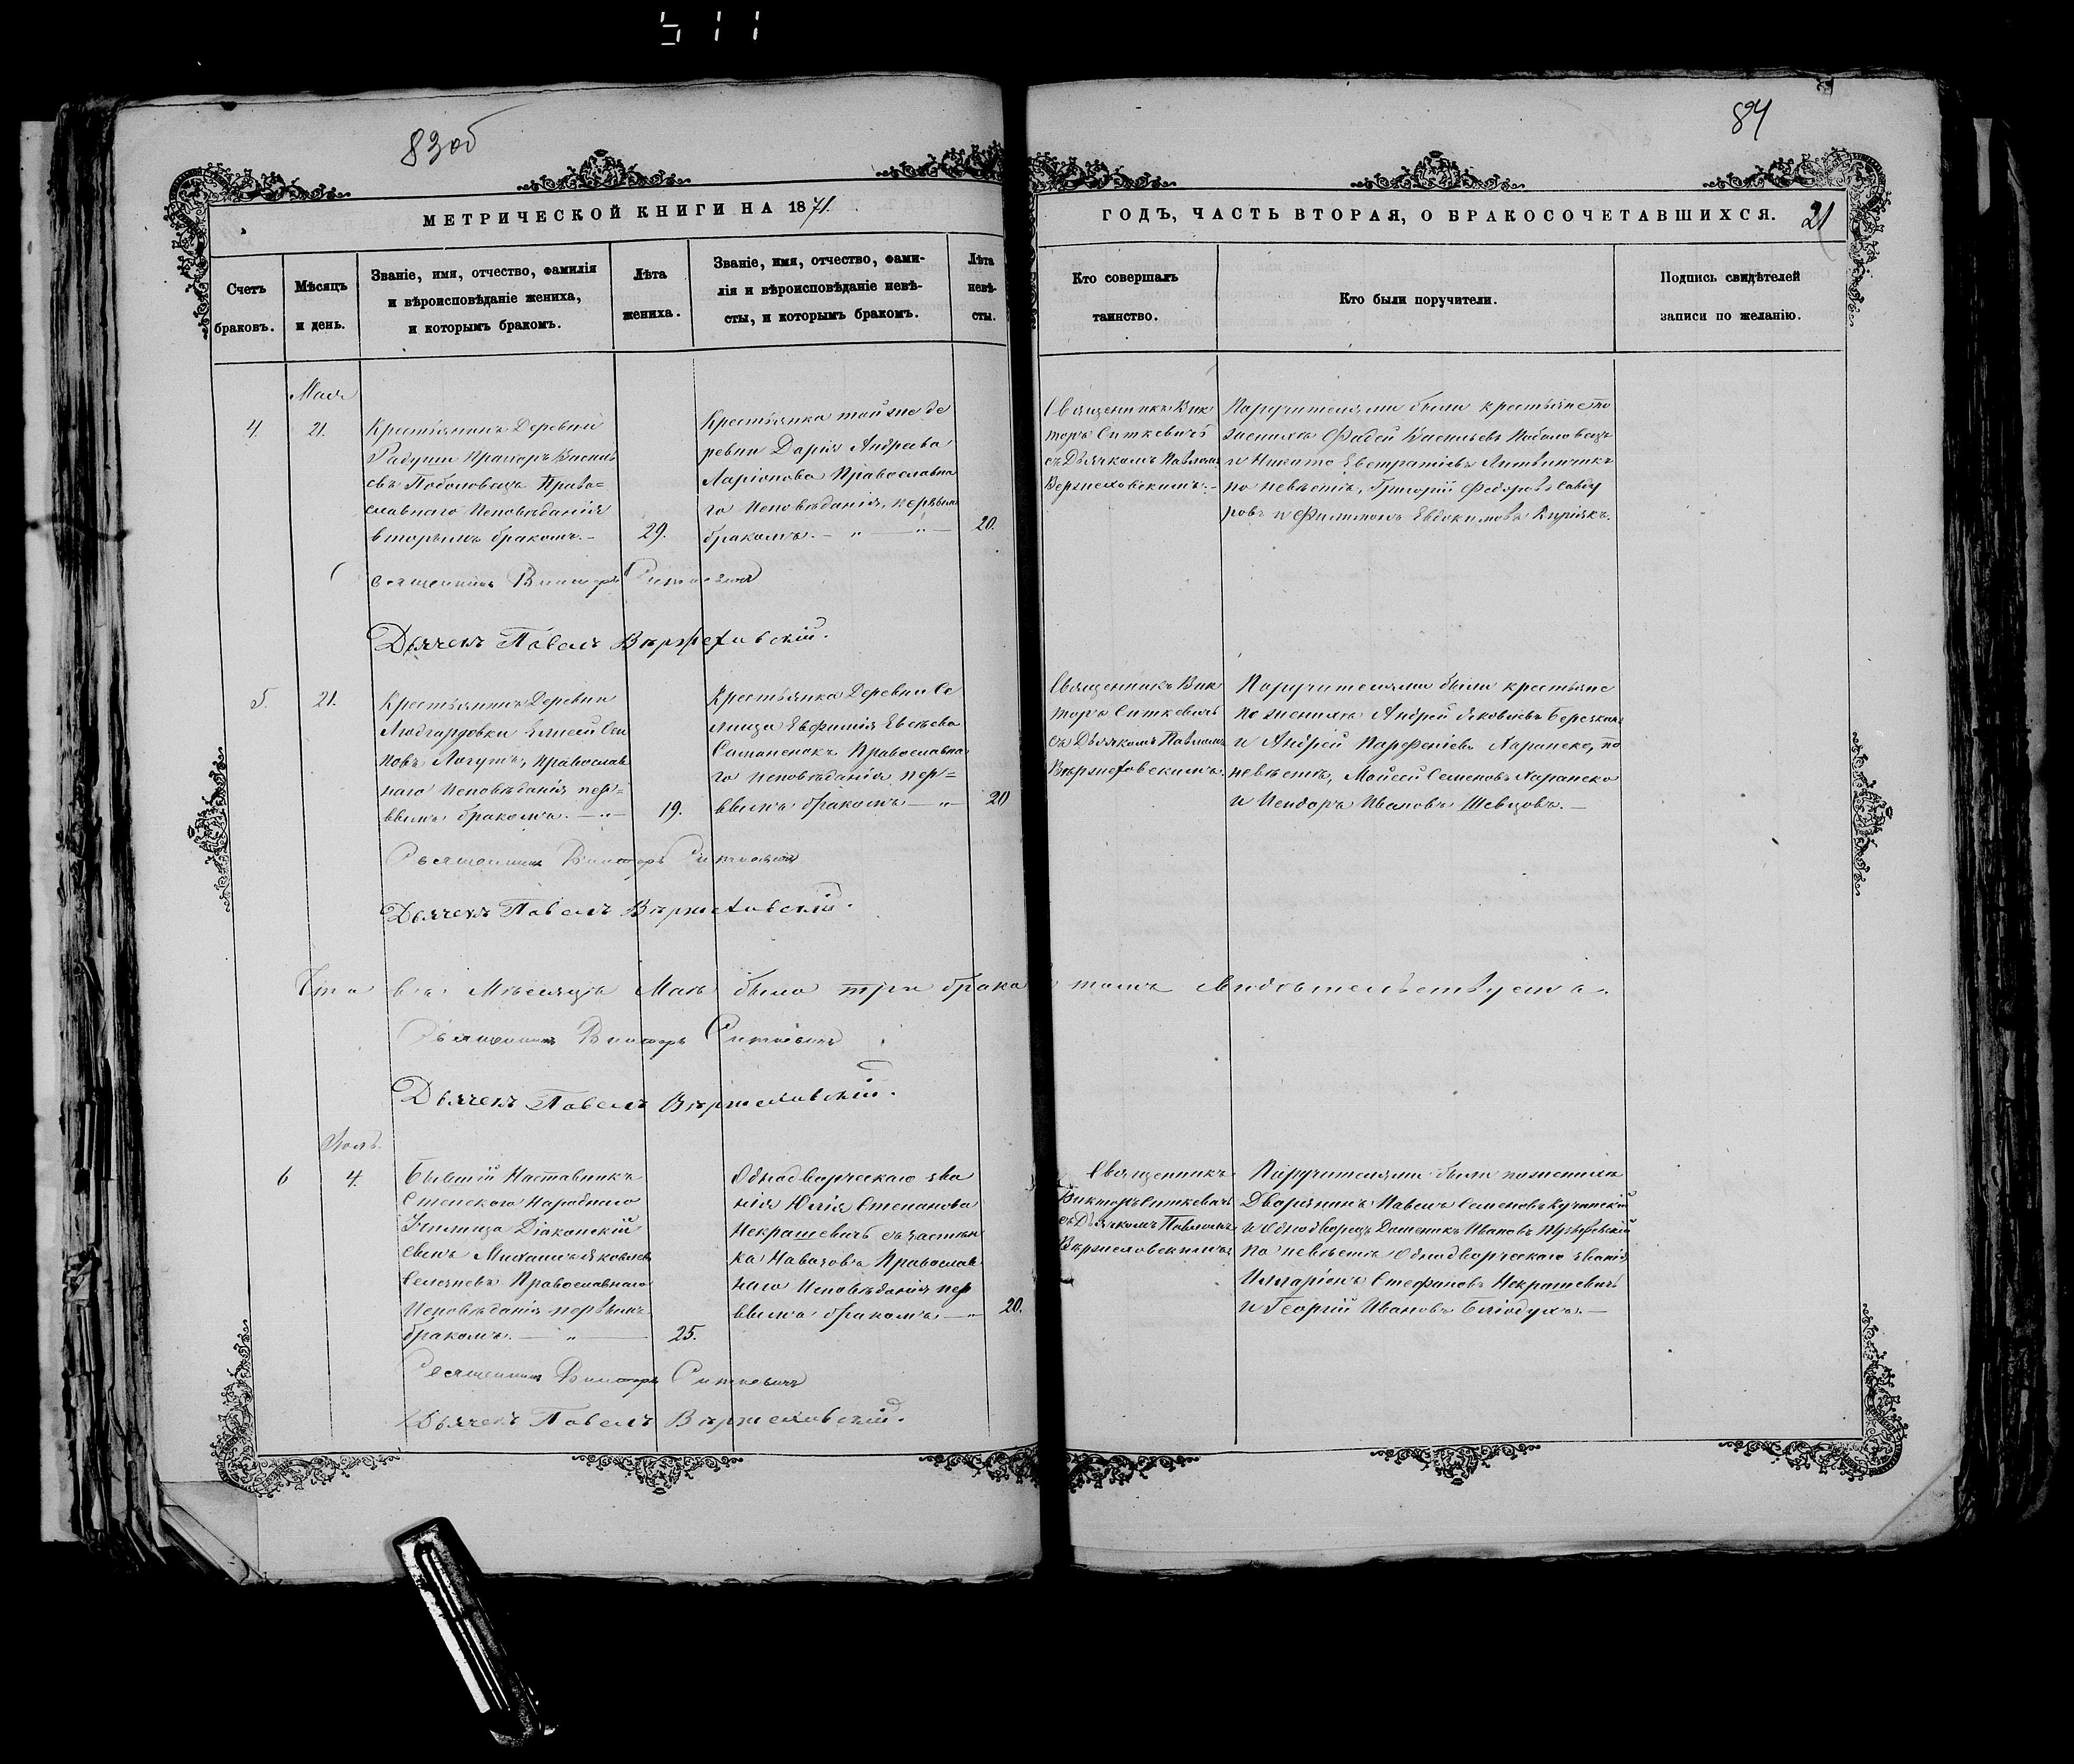 511
83об
84
МЕТРИЧЕСКОЙ КНИГИ НА 1871.
ГОДЪ, ЧАСТЬ ВТОРАЯ, О БРАКОСОЧЕТАВШИХСЯ.
21
Счетъ
браковъ.
Мѣсяцъ
и день.
Званіе, имя, отчество, фамилія
и вѣроисповѣданіе жениха,
и которымъ бракомъ.
Лѣта
жениха.
Званіе, имя, отчество, фами-
лія и вѣроисповѣданіе невѣ-
сты, и которымъ бракомъ.
Лѣта
невѣ-
сты.
Кто совершалъ
таинство.
Кто были поручители.
Подпись свидѣтелей
записи по желанію.
Мая
4.
21.
Крестьянинъ Деревни
Радуши Прохоръ Василь
евъ Поболовецъ Право=
славнаго Исповѣданія
вторымъ бракомъ.–
29.
Крестьянка той же де
ревни Дарія Андреева
Ларіонова Православна
го Исповѣданія, первымъ
бракомъ. – „ — „ —
20.
Священникъ Вик
торъ Ситкевичъ
съ Дьячкомъ Павломъ
Вержеховскимъ.–
Поручителями были крестьяне по
женихѣ Фадей Васильевъ Поболовецъ
и Никита Евстратіевъ Литвинчикъ
по невѣстѣ, Григорій Федоровъ
и Филимонъ Евдокимовъ Киріякъ.
Священникъ Викторъ Ситкевичъ
Дьячекъ Павелъ Вержеховскій.
5.
21.
Крестьянинъ Деревни
Людгардовки Елисей
новъ православ
наго Исповѣданія пер=
вымъ бракомъ. — „ —
19.
Крестьянка Деревни Се
лища Евфимія Евсѣева
Православна
го Исповѣданія пер=
вымъ бракомъ — „ —
20
Священникъ Вик
торъ Ситкевичъ
съ Дьячкомъ Павломъ
Вержеховскимъ.
Поручителями были крестьяне
по женихѣ Андрей Яковлевъ
и Андрей Парфеніевъ Харанеко, по
невѣстѣ, Моисей Семеновъ Харанеко
и Исидоръ Ивановъ Шевцовъ.—
Священникъ Викторъ Ситкевичъ
Дьячекъ Павелъ Вержеховскій.
Что въ Мѣсяцѣ Маѣ было три брака томъ свидѣтельствуемъ.
Священникъ Викторъ Ситкевичъ
Дьячекъ Павелъ Вержеховскій.
Іюль.
6
4.
Бывшій Наставникъ
Степскаго Народнаго
Училища Діаконскій
сынъ Михаилъ Яковлевъ
Селезневъ Православнаго
Исповѣданія первымъ
бракомъ. — „ —
25.
Однодворческаго зва
нія Юлія Степанова
Некрашевичъ съ застѣн
ка Навозова Православ
наго Исповѣданія пер
вымъ бракомъ — „
20.
Священникъ
Викторъ Ситкевичъ
съ Дьячкомъ Павломъ
Вержеховскимъ
Поручителями были по женихѣ
Дворянинъ Павелъ Семеновъ Кучинскій
и Однодворецъ Доменикъ Ивановъ
по невѣстѣ Однодворческаго званія
Илларіонъ Стефановъ Некрашевичъ
и Георгій Ивановъ Блiодухъ.—
Священникъ Викторъ Ситкевичъ
Дьячекъ Павелъ Вержеховскій.